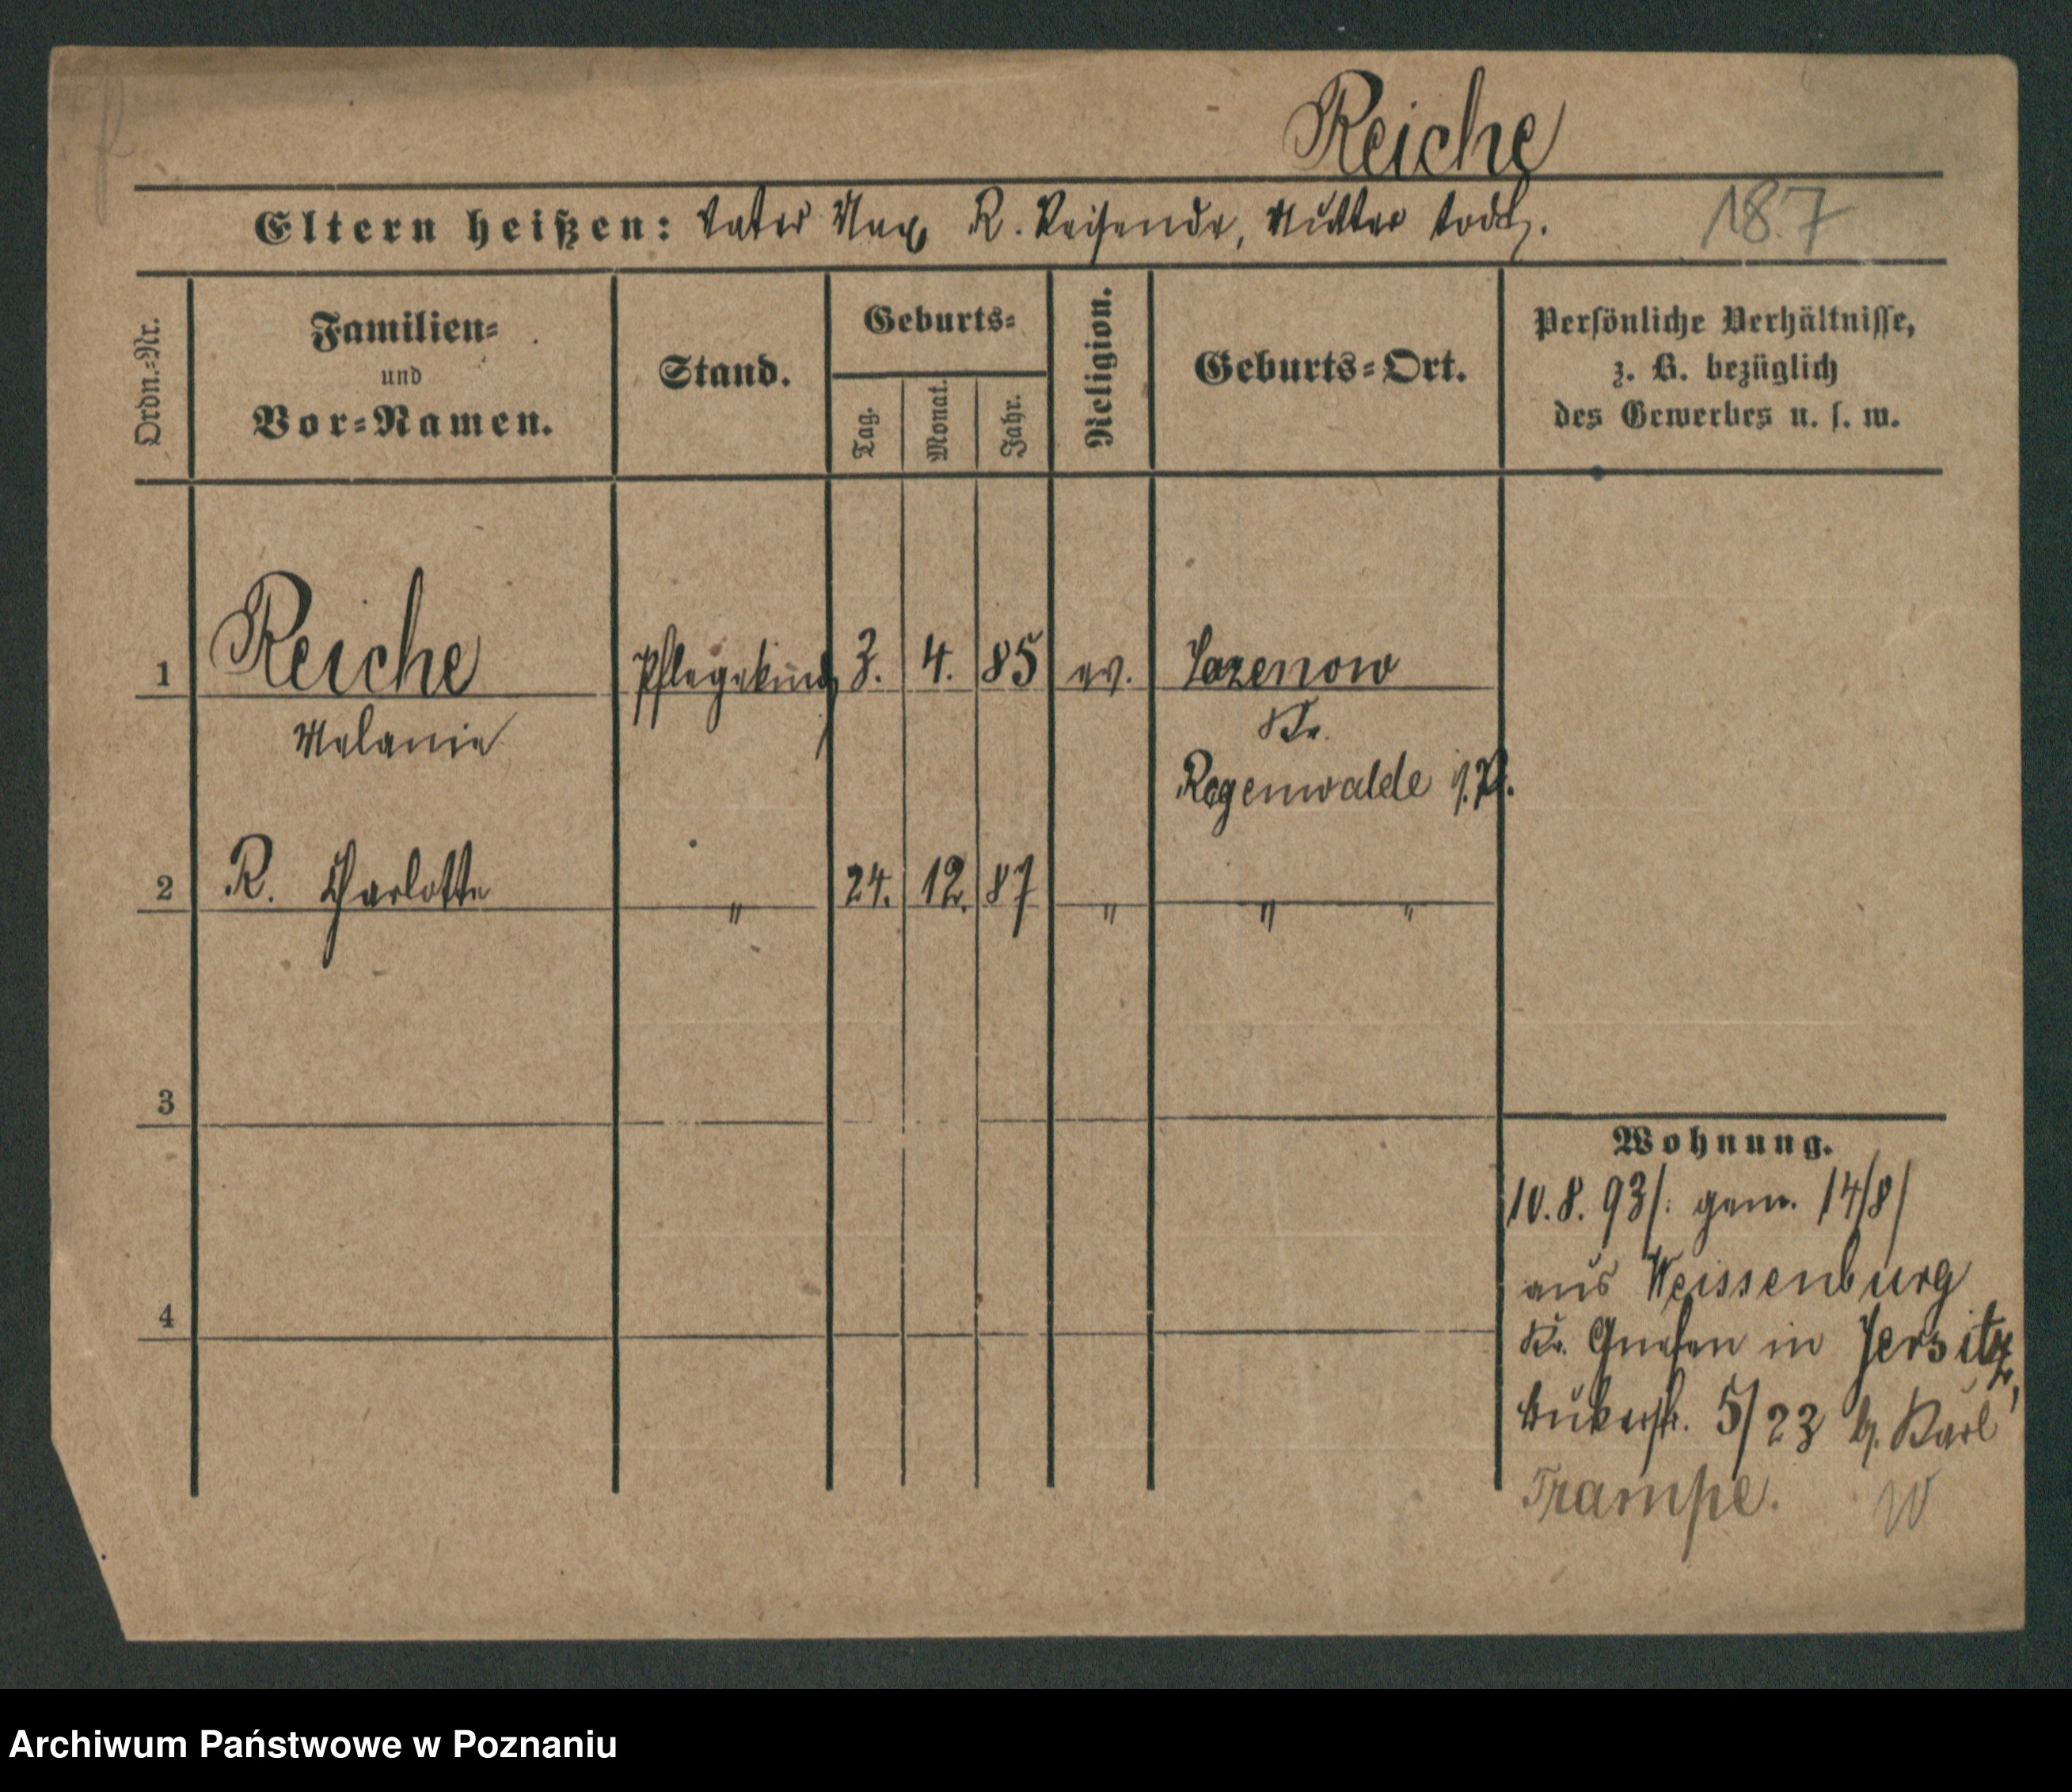 Reiche
Eltern heißen: Vater Max R. Reisender, Mutter todt.
187
Ordn.-Nr.
Familien-
und
Vor-Namen.
Stand.
Geburts-
Tag.
Monat.
Jahr.
Religion.
Geburts-Ort.
Persönliche Verhältnisse,
z. B. bezüglich
des Gewerbes u. s. w.
1 Reiche Pflegekind 3. 4. 85 ev. Lazenow
Melanie Kr.
Regenwalde i. P.
2 R. Charlotte " 24. 12. 87 " " "
3
4
Wohnung.
10.8.93/: gem. 14/8/
aus Weissenburg
Kr. Gnesen in Jersitz,
Bukerstr. 5/23 b. Karl
Trampe. W
Archiwum Państwowe w Poznaniu